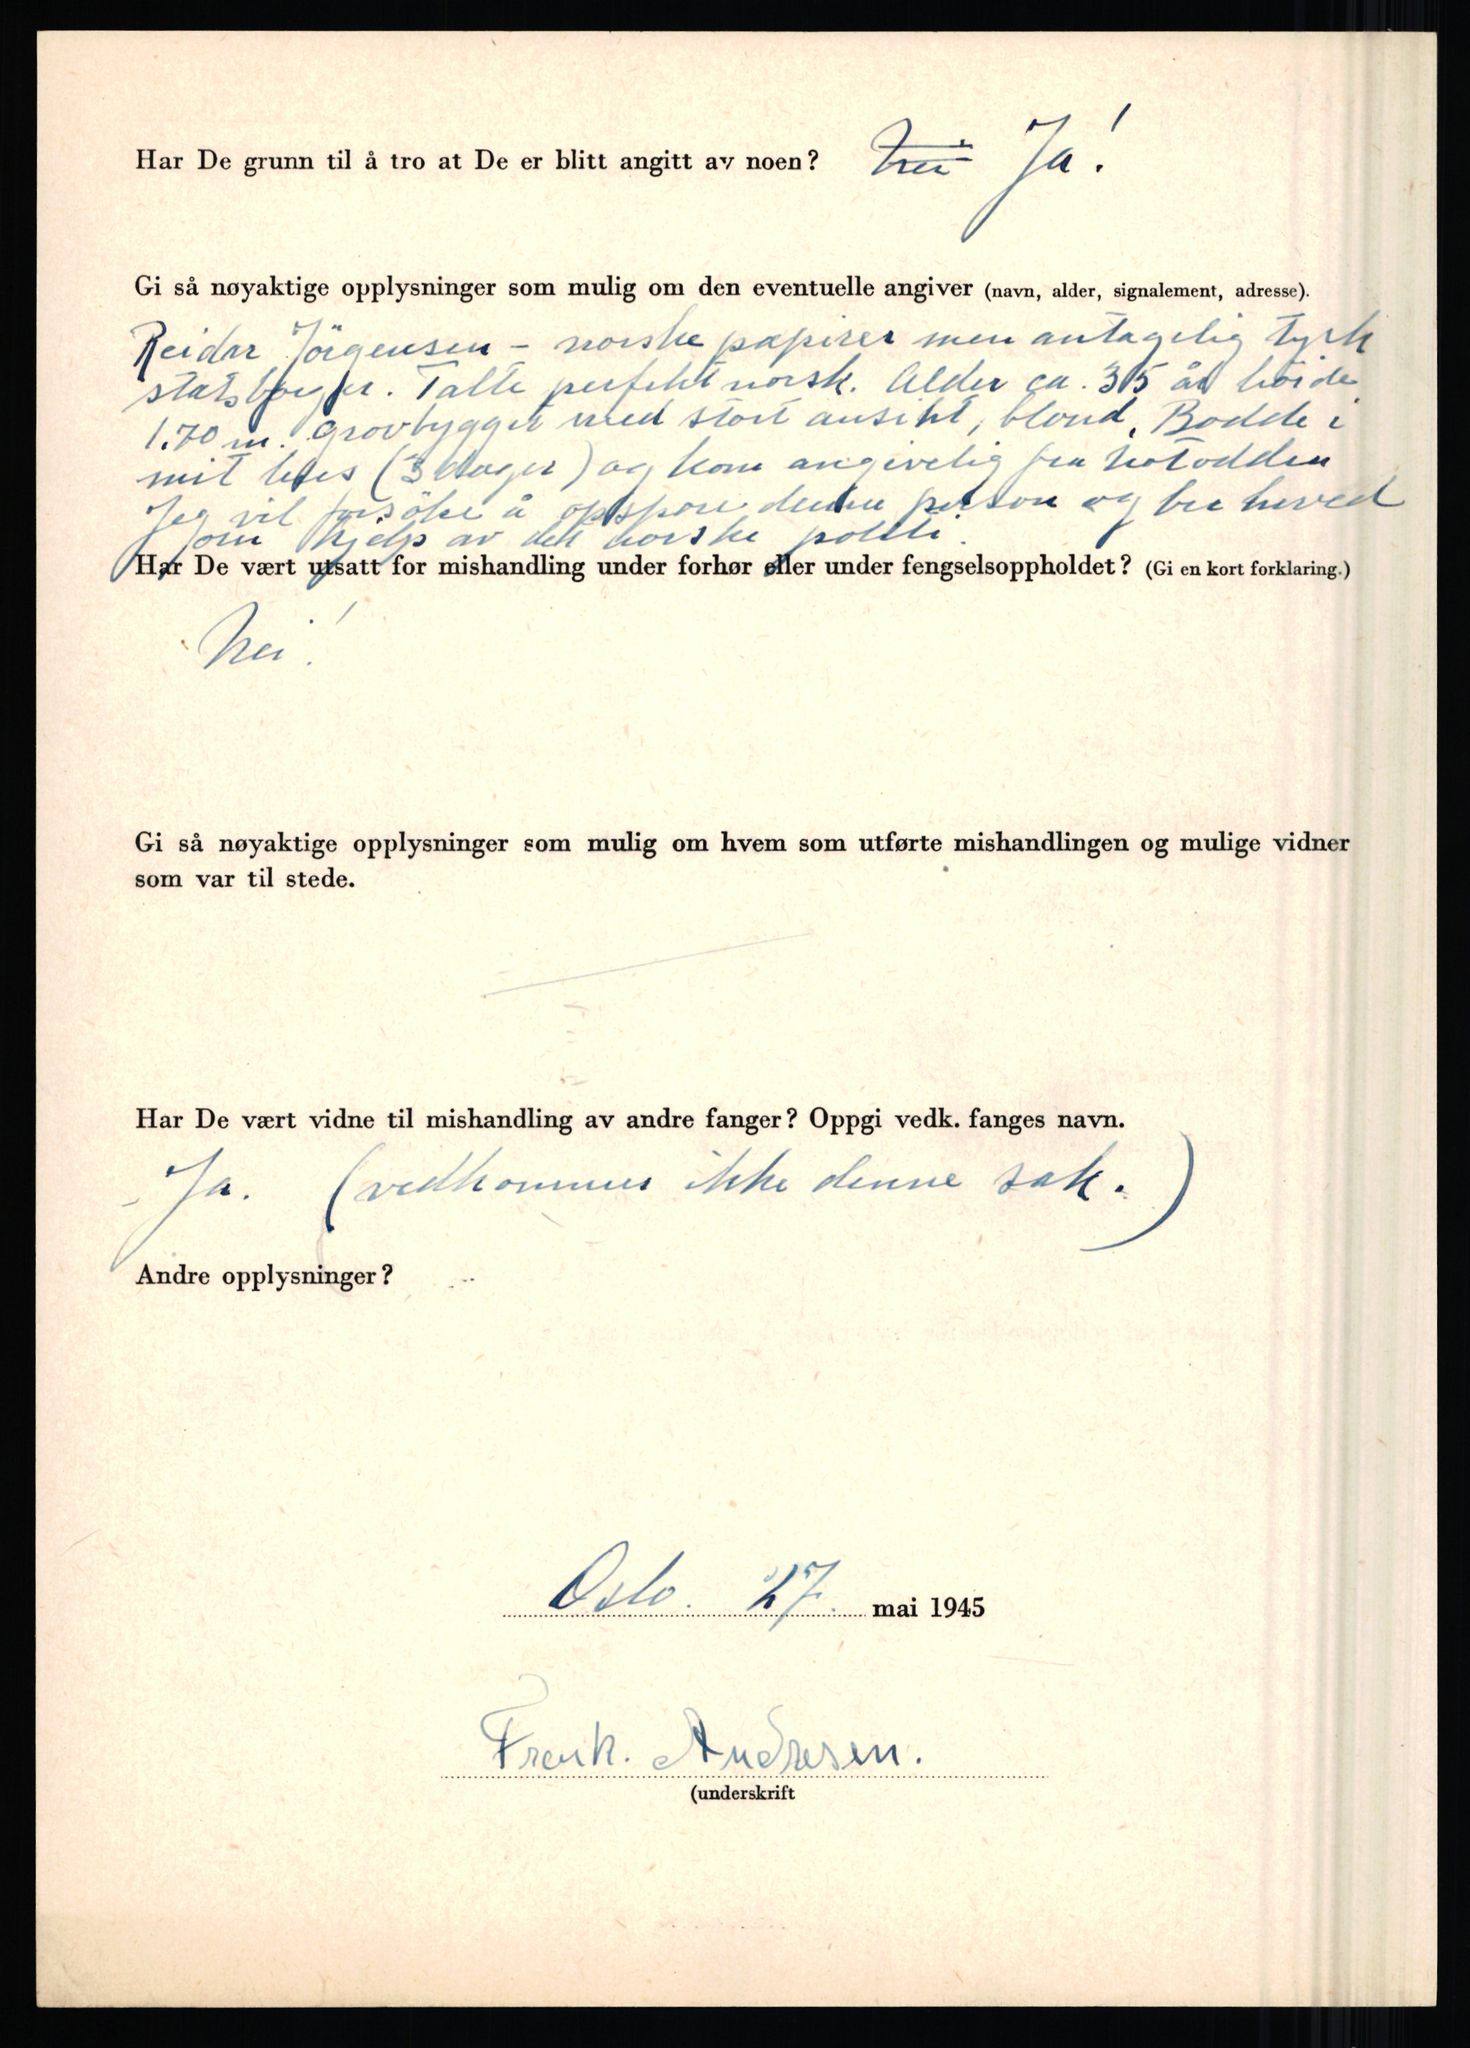 Har De grunn til å tro at De er blitt angitt av noen? Nei Ja!
Gi så nøyaktige opplysninger som mulig om den eventuelle angiver (navn, alder, signalement, adresse).
Reidar Jörgensen – norske papirer men antagelig tysk
statsborger. Talte perfekt norsk. Alder ca. 35 år höide
1.70 m. grovbygget med stort ansikt, blond. Bodde i
mit hus (3 dager) og kom angivelig fra Notodden
Jeg vil forsöke å oppspore denne person og ber herved
om hjelp av det norske politi.
Har De vært utsatt for mishandling under forhør eller under fengselsoppholdet? (Gi en kort forklaring.)
Nei!
Gi så nøyaktige opplysninger som mulig om hvem som utførte mishandlingen og mulige vidner
som var til stede.
Har De vært vidne til mishandling av andre fanger? Oppgi vedk. fanges navn.
Ja. (vedkommer ikke denne sak.)
Andre opplysninger?
Oslo. 27. mai 1945
Frank. Andresen.
(underskrift